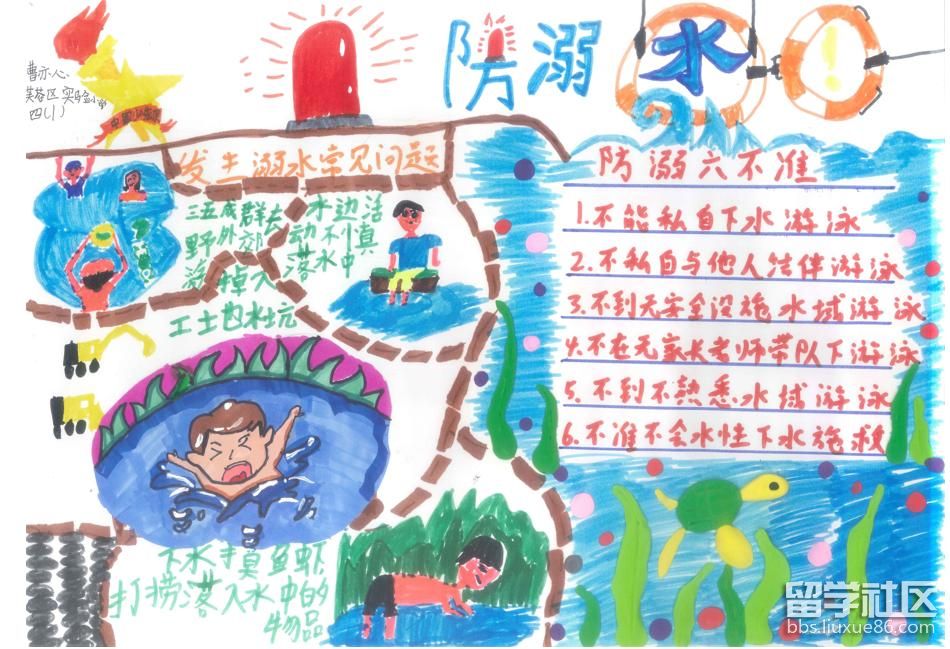 曹亦心
芙蓉区实验小学
四(1)
防溺水
发生溺水常见问题
三五成群去
野外郊
游
掉入
工土包水坑
水边活
动不慎
落水中
下水摸鱼虾
打捞落入水中的
物品
防溺六不准
1.不能私自下水游泳
2.不私自与他人结伴游泳
3.不到无安全设施水域游泳
4.不在无家长老师带队下游泳
5.不到不熟悉水域游泳
6.不准不会水性下水施救
留学社区
bbs.liuxue86.com